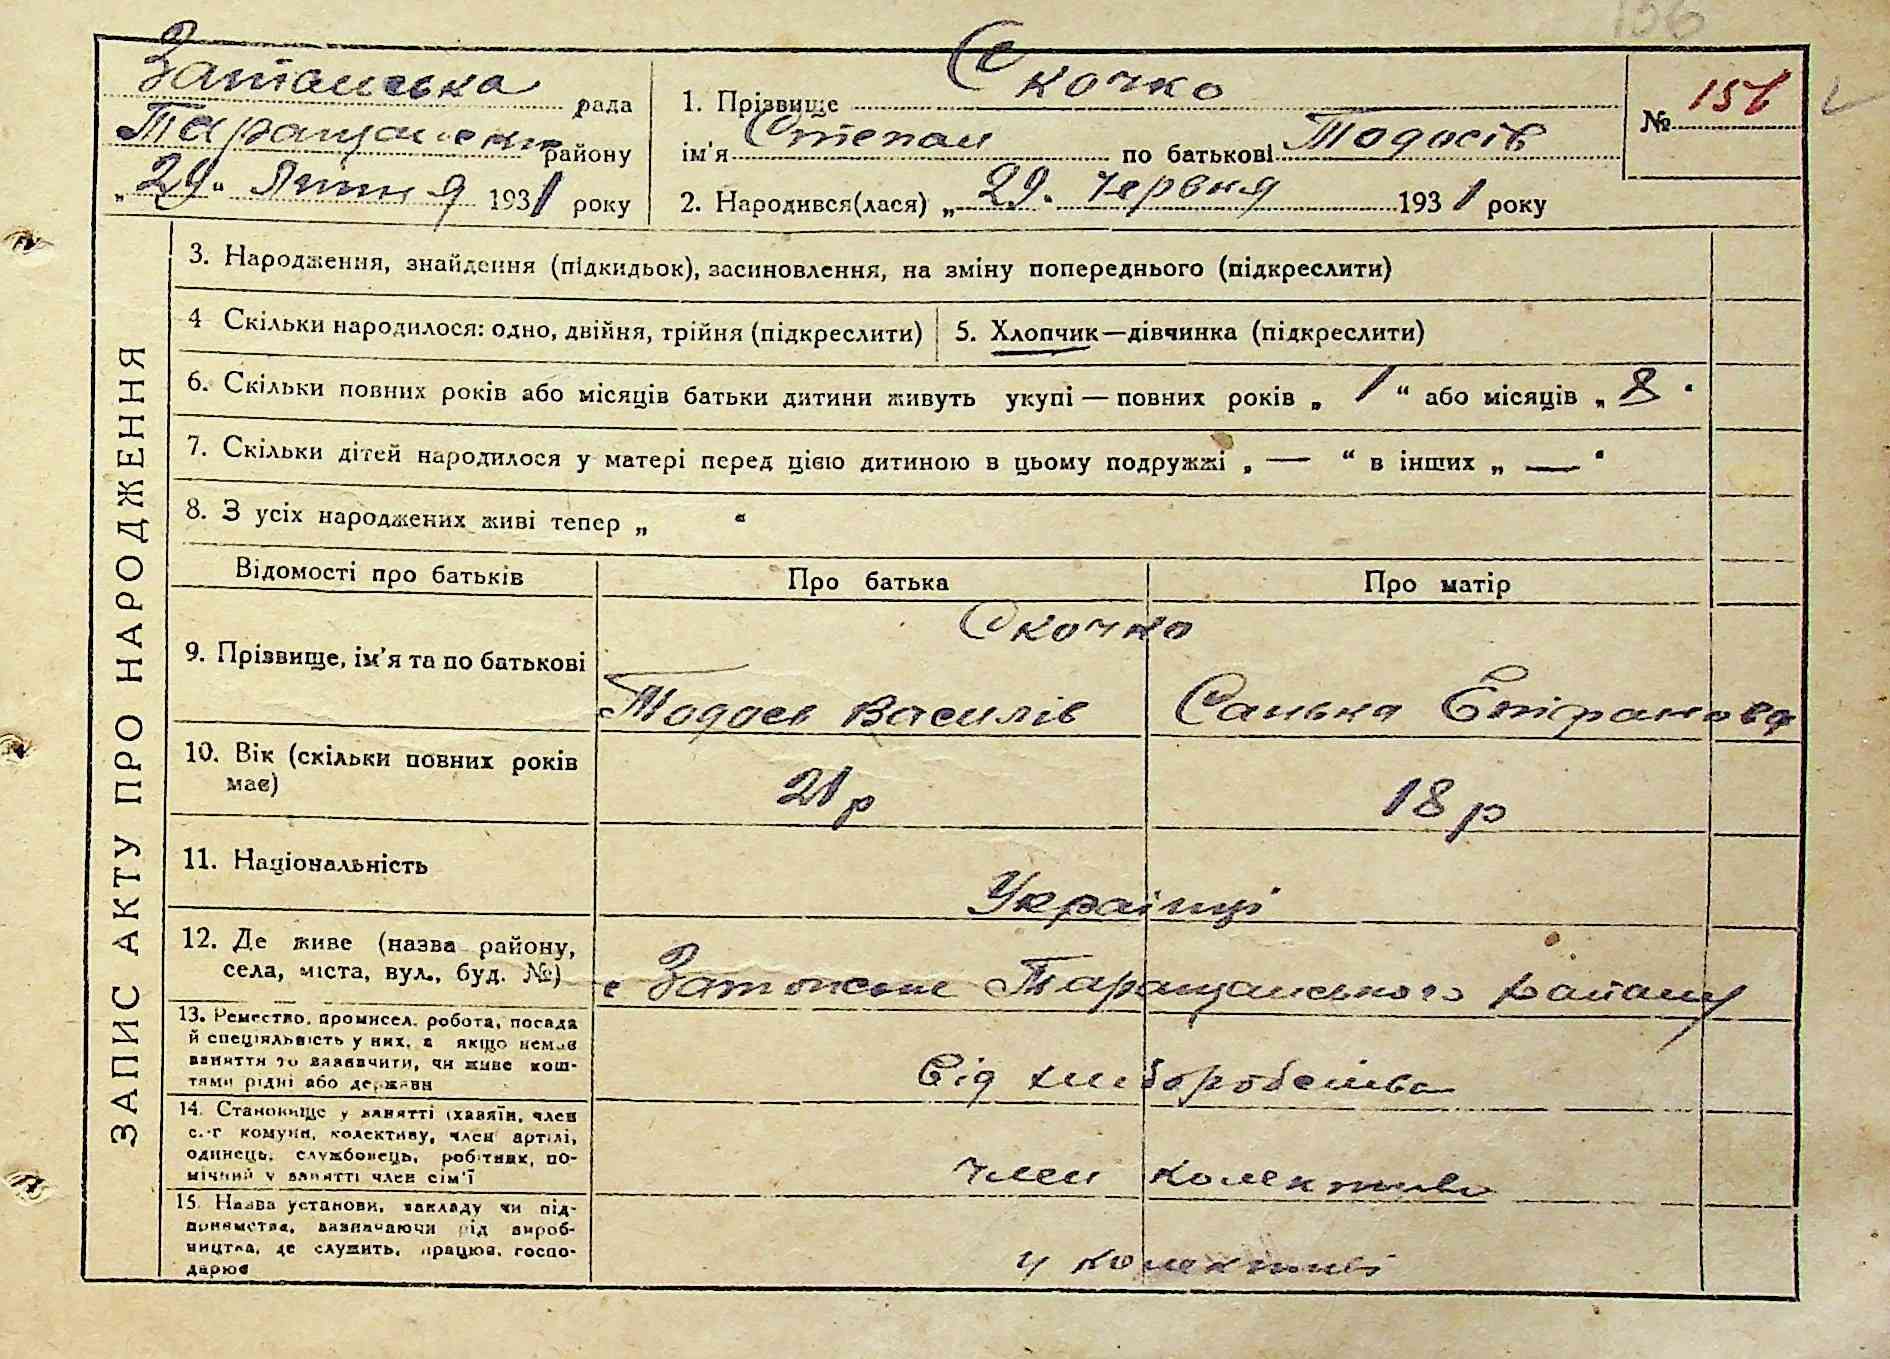 156
Затонська рада
Таращанськ району
„29“ Липня 1931 року
1. Прізвище Скочко
ім'я Степан по батькові Тодосів
2. Народився(лася) „29“ Червня 1931 року
№ 156
ЗАПИС АКТУ ПРО НАРОДЖЕННЯ
3. Народження, знайдення (підкидьок), засиновлення, на зміну попереднього (підкреслити)
4 Скільки народилося: одно, двійня, трійня (підкреслити)
5. Хлопчик—дівчинка (підкреслити)
6. Скільки повних років або місяців батьки дитини живуть укупі — повних років „ 1 “ або місяців „ 8 “
7. Скільки дітей народилося у матері перед цією дитиною в цьому подружжі „ — “ в інших „ — “
8. З усіх народжених живі тепер „ “
Відомості про батьків Про батька Про матір
Скочко
9. Прізвище, ім'я та по батькові
Тодось Василів Санька Епіфанова
10. Вік (скільки повних років
має)
21 р 18 р
11. Національність
Українці
12. Де живе (назва району,
села, міста, вул., буд. №)
с Затонське Таращанського району
13. Ремество, промисел, робота, посада
й спеціяльність у них, а якщо немає
заняття то зазначити, чи живе кош-
тами рідні або держави
Від хліборобства
14. Становище у занятті (хазяїн, член
с.-г комуни, колективу, член артілі,
одинець, службовець, робітник, по-
мічний у занятті член сім'ї
член колективу
15. Назва установи, закладу чи під-
приємства, зазначаючи рід вироб-
ництва, де служить, працює, госпо-
дарює
у колективі